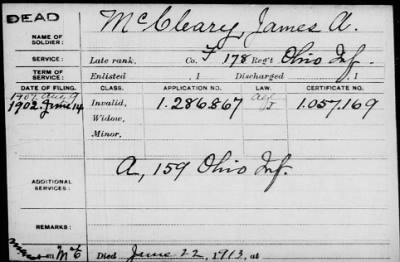 DEAD
NAME OF SOLDIER: McCleary, James A.
SERVICE: Late rank, Co. F, 178 Reg't Ohio Inf.
TERM OF SERVICE: Enlisted , 1 Discharged , 1
DATE OF FILING. CLASS. APPLICATION NO. LAW. CERTIFICATE NO.
1907 Aug. 9
1902. June 14 Invalid, 1.286.867 1.057.169
Widow,
Minor,
ADDITIONAL SERVICES: A, 159 Ohio Inf.
REMARKS:
Mc C
Died June 22, 1913, at